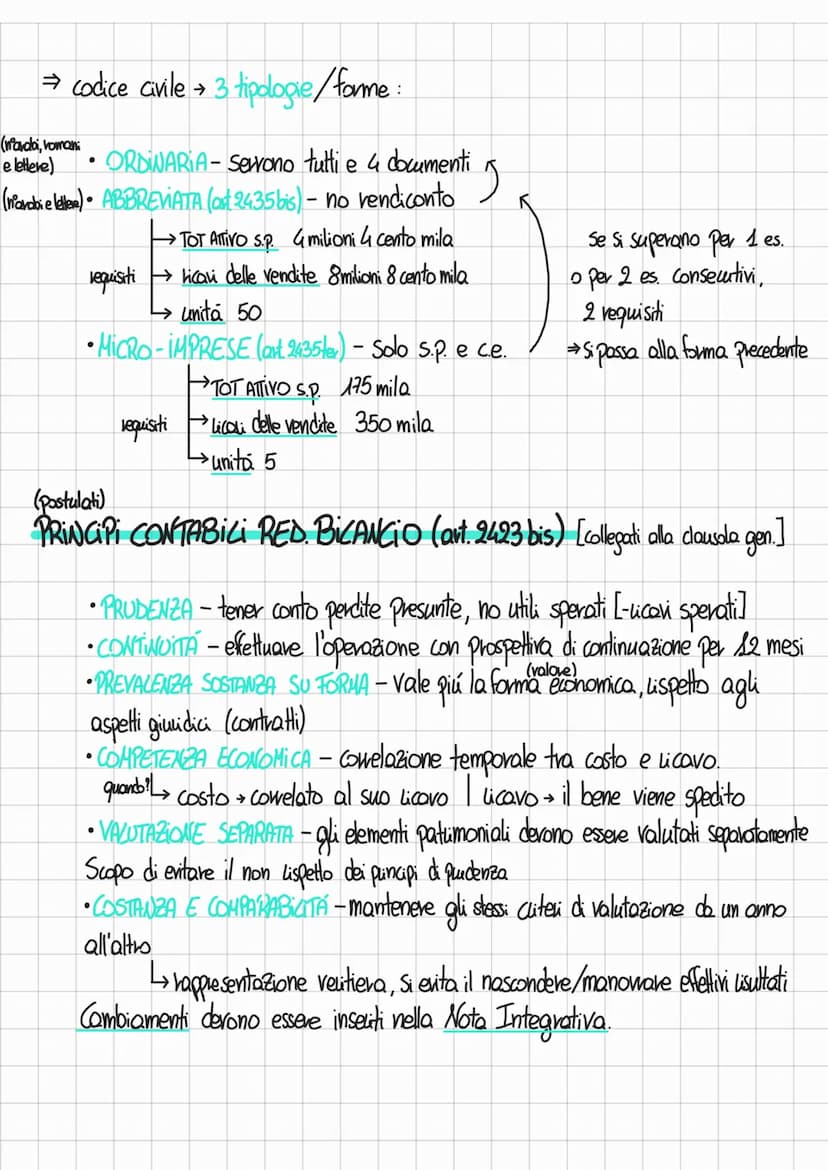 ⇒ codice civile → 3 tipologie/forme :
(n°arabi, romani
e lettere) • ORDINARIA - servono tutti e 4 documenti
(n°arabi e lettere) • ABBREVIATA (art 2435 bis) - no rendiconto
→ TOT ATTIVO S.P. 4 milioni 4 cento mila
requisiti → ricavi delle vendite 8 milioni 8 cento mila
→ unitá 50
se si superano per 1 es.
o per 2 es. consecutivi,
2 requisiti
⇒ si passa alla forma precedente
• MICRO-IMPRESE (art. 2435 ter) - solo s.p. e c.e.
→ TOT ATTIVO S.P. 175 mila
requisiti → ricavi delle vendite 350 mila
→ unitá 5
(postulati)
PRINCIPI CONTABILI RED. BILANCIO (art. 2423 bis) [collegati alla clausola gen.]
• PRUDENZA - tener conto perdite presunte, no utili sperati [-ricavi sperati]
• CONTINUITÁ - effettuare l'operazione con prospettiva di continuazione per 12 mesi
• PREVALENZA SOSTANZA SU FORMA - vale piú la forma (valore) economica, rispetto agli
aspetti giuridici (contratti)
• COMPETENZA ECONOMICA - correlazione temporale tra costo e ricavo.
quando? ↳ costo → correlato al suo ricavo | ricavo → il bene viene spedito
• VALUTAZIONE SEPARATA - gli elementi patrimoniali devono essere valutati separatamente
Scopo di evitare il non rispetto dei principi di prudenza
• COSTANZA E COMPARABILITÁ - mantenere gli stessi criteri di valutazione da un anno
all'altro
↳ rappresentazione veritiera, si evita il nascondere/manovrare effettivi risultati
Cambiamenti devono essere inseriti nella Nota Integrativa.